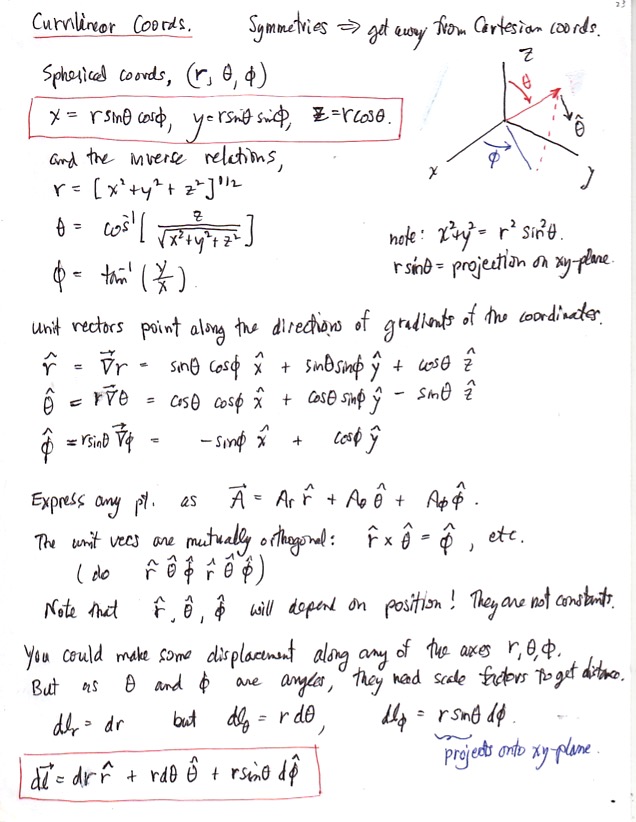 23
Curvilinear Coords. Symmetries ⇒ get away from Cartesian coords.
Spherical coords, (r, θ, ϕ)
x = r sinθ cosϕ, y = r sinθ sinϕ, z = r cosθ.
z
θ
θ̂
ϕ
x
y
and the inverse relations,
r = [x² + y² + z²]^1/2
θ = cos⁻¹[z / √(x² + y² + z²)]
ϕ = tan⁻¹(y/x).
note: x² + y² = r² sin²θ.
r sinθ = projection on xy-plane.
unit vectors point along the directions of gradients of the coordinates.
r̂ = ∇⃗r = sinθ cosϕ x̂ + sinθ sinϕ ŷ + cosθ ẑ
θ̂ = r∇⃗θ = cosθ cosϕ x̂ + cosθ sinϕ ŷ − sinθ ẑ
ϕ̂ = r sinθ ∇⃗ϕ = − sinϕ x̂ + cosϕ ŷ
Express any pt. as A⃗ = Aᵣ r̂ + A_θ θ̂ + A_ϕ ϕ̂.
The unit vecs are mutually orthogonal: r̂ × θ̂ = ϕ̂, etc.
(do r̂ θ̂ ϕ̂ r̂ θ̂ ϕ̂)
Note that r̂, θ̂, ϕ̂ will depend on position! They are not constants.
You could make some displacement along any of the axes r, θ, ϕ.
But as θ and ϕ are angles, they need scale factors to get distance.
dlᵣ = dr but dl_θ = r dθ, dl_ϕ = r sinθ dϕ.
projects onto xy-plane.
dl⃗ = dr r̂ + r dθ θ̂ + r sinθ dϕ̂